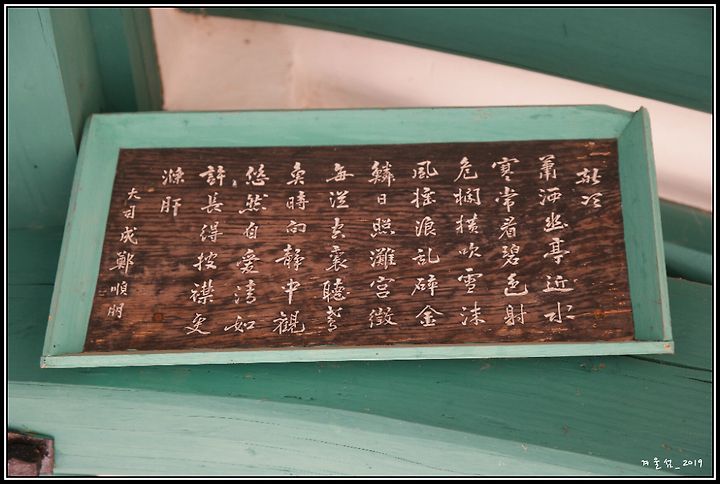 敬次
蕭洒幽亭近水
寒常看碧色射
危欄橫吹雪沫
風搖浪乱碎金
鱗日照灘宮徵
每從裏聽鳶
魚時向靜中觀
悠然自愛清如
許長得披襟更
滌肝
大司成鄭順朋
겨울섬_2019